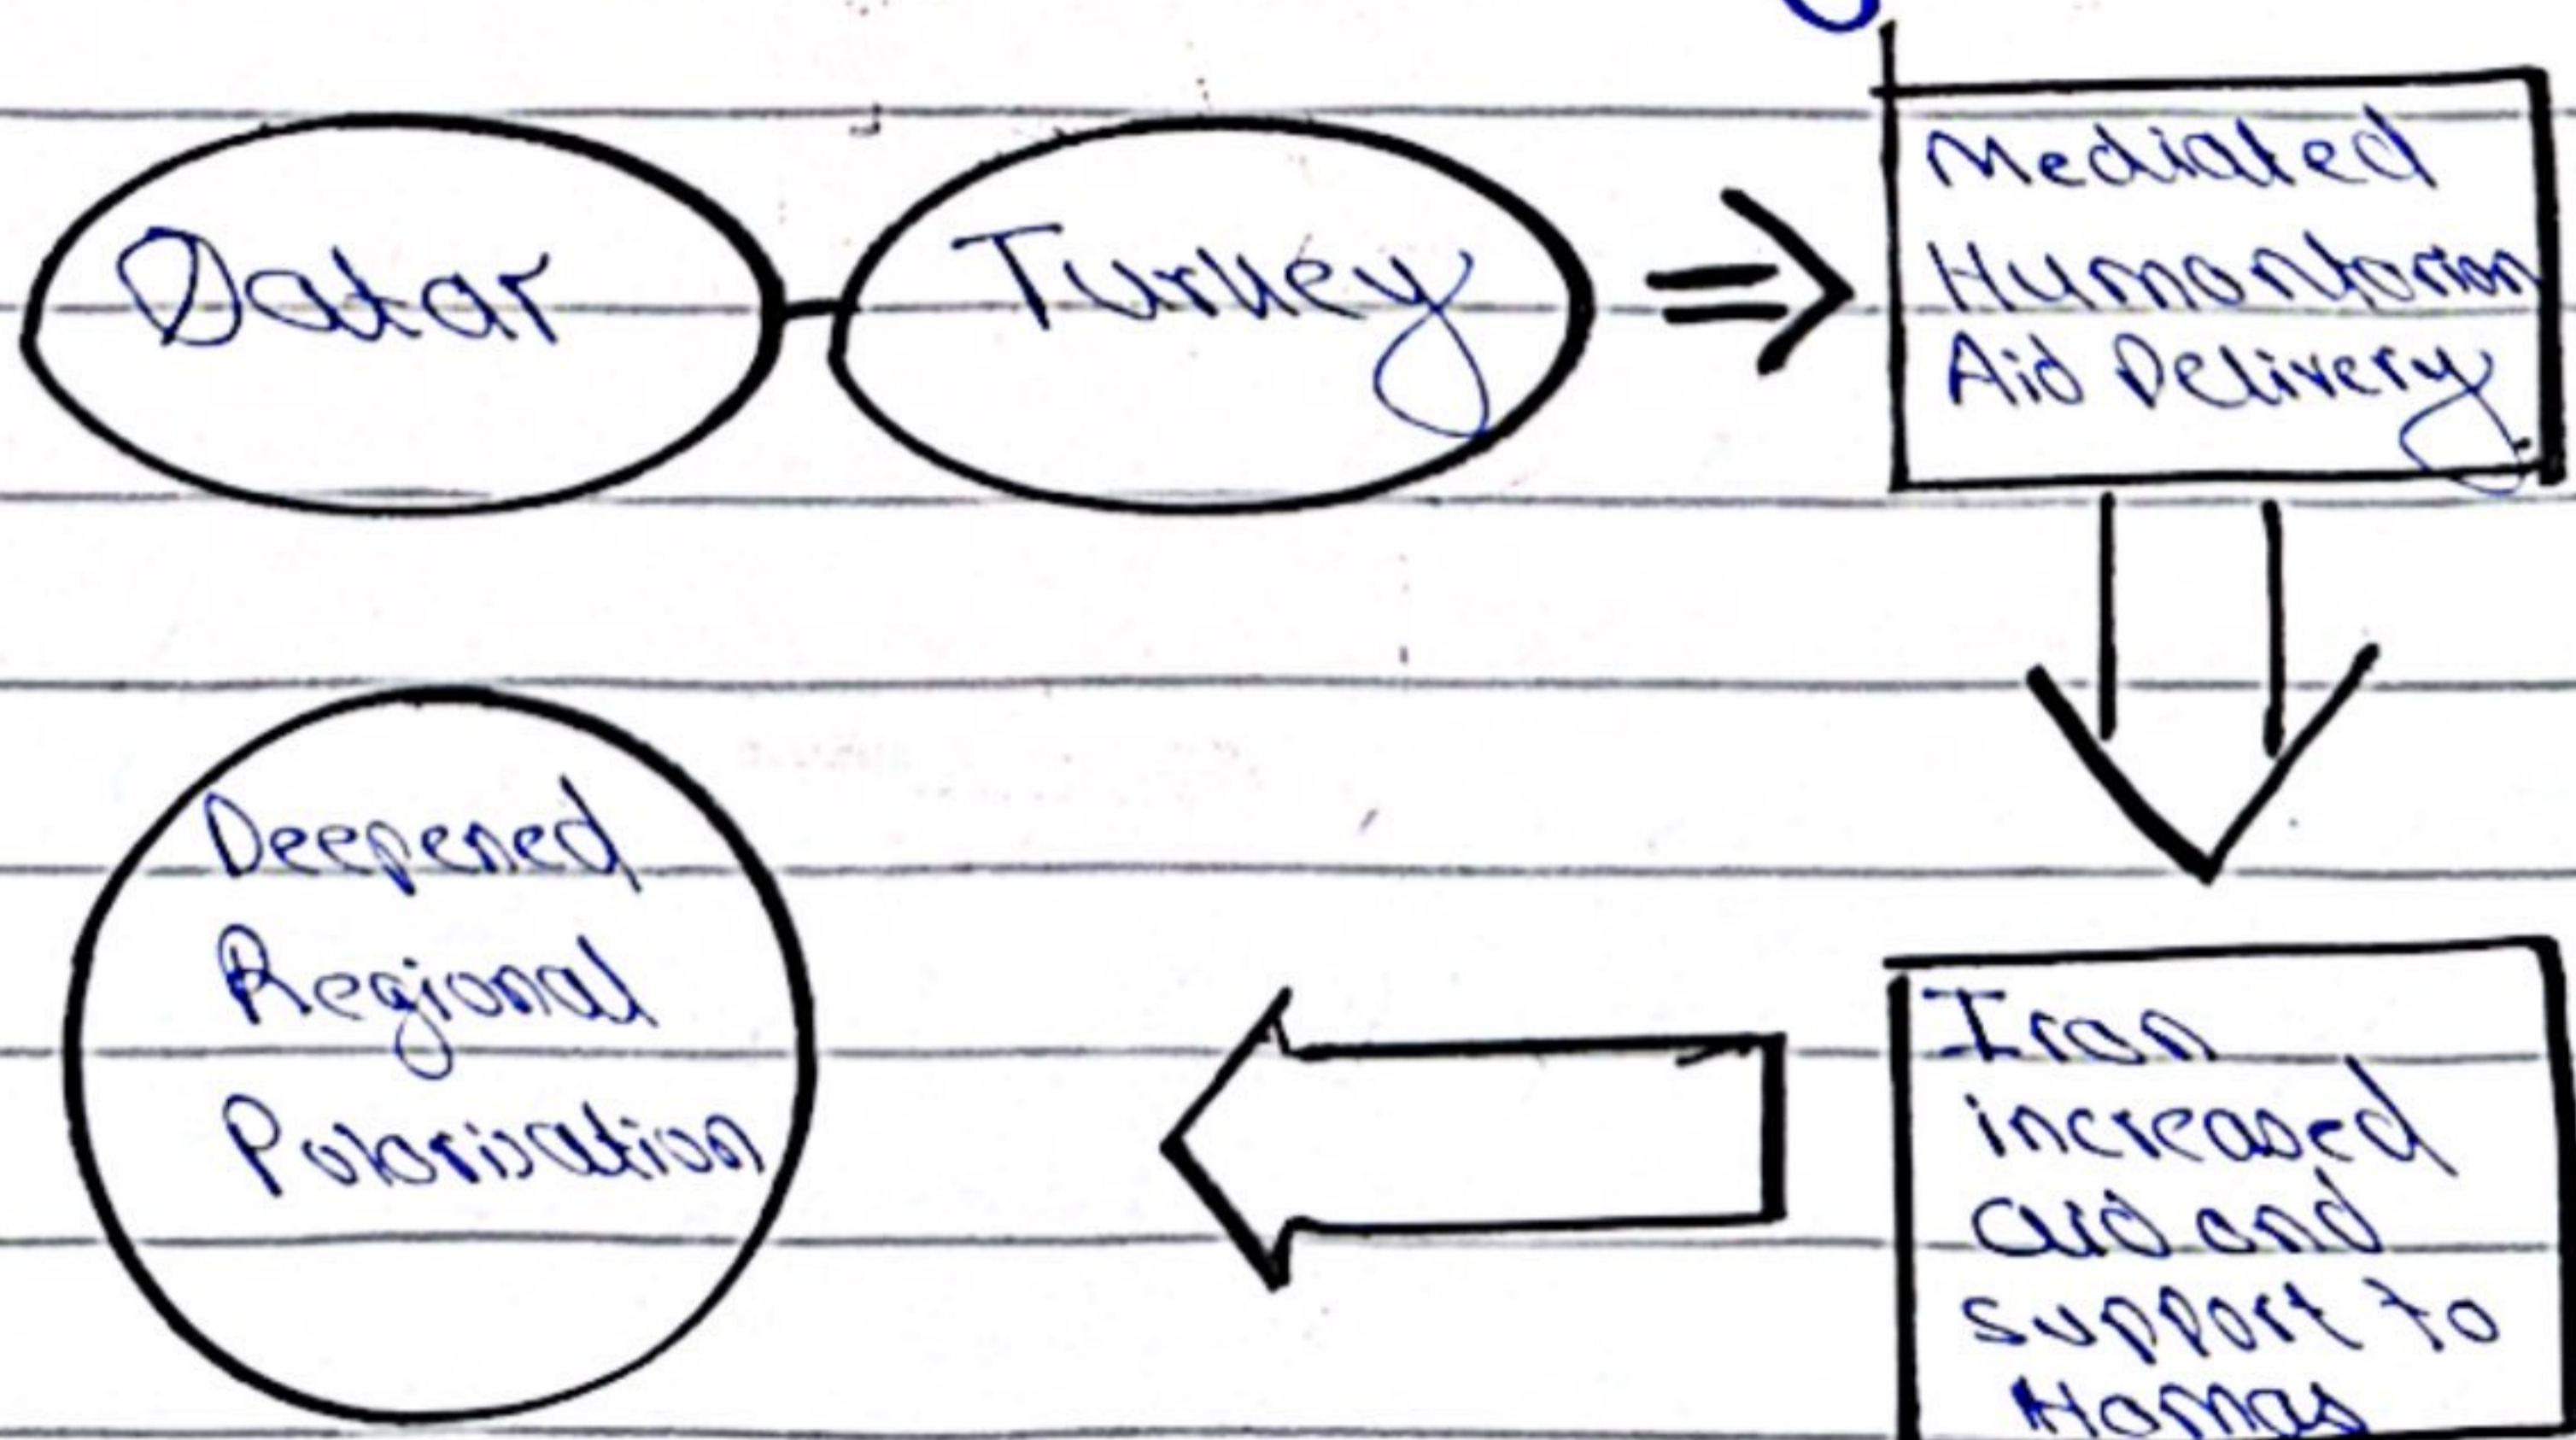 Qatar
Turkey
Mediated
Humantarian
Aid Delivery
Iran
increased
aid and
support to
Hamas
Deepened
Regional
Polarisation